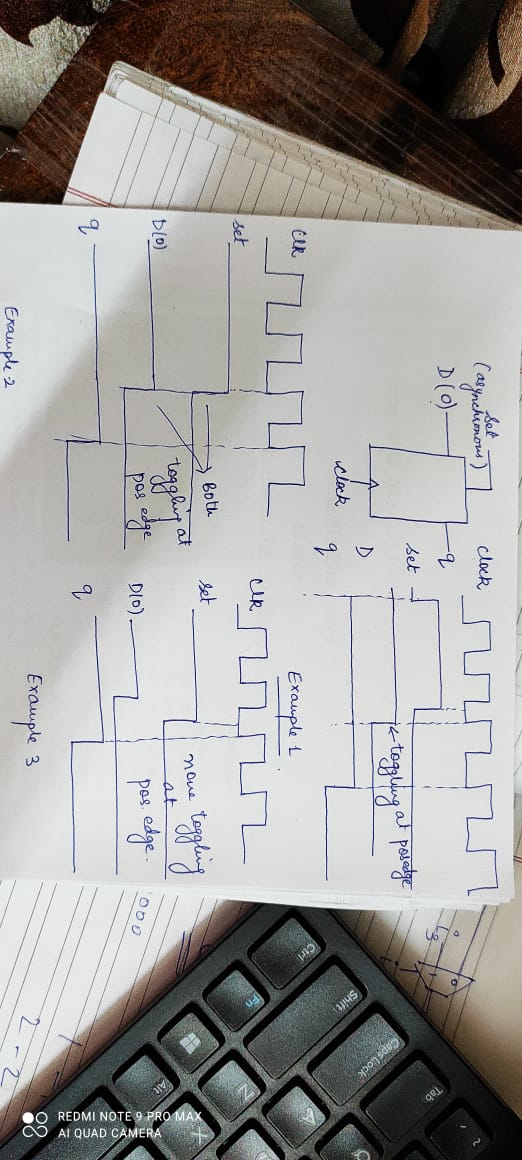 Set
(asynchronous)
D(0)
q
clock
clock
set
D
q
toggling at posedge
Example 1
Clk
set
D(0)
q
Both
toggling at
pos edge
Example 2
Clk
set
D(0)
q
none toggling
at
pos. edge.
Example 3
000
2 - 2
Ctrl
Fn
Shift
Caps Lock
Tab
Alt
Z
A
X
Q
REDMI NOTE 9 PRO MAX
AI QUAD CAMERA